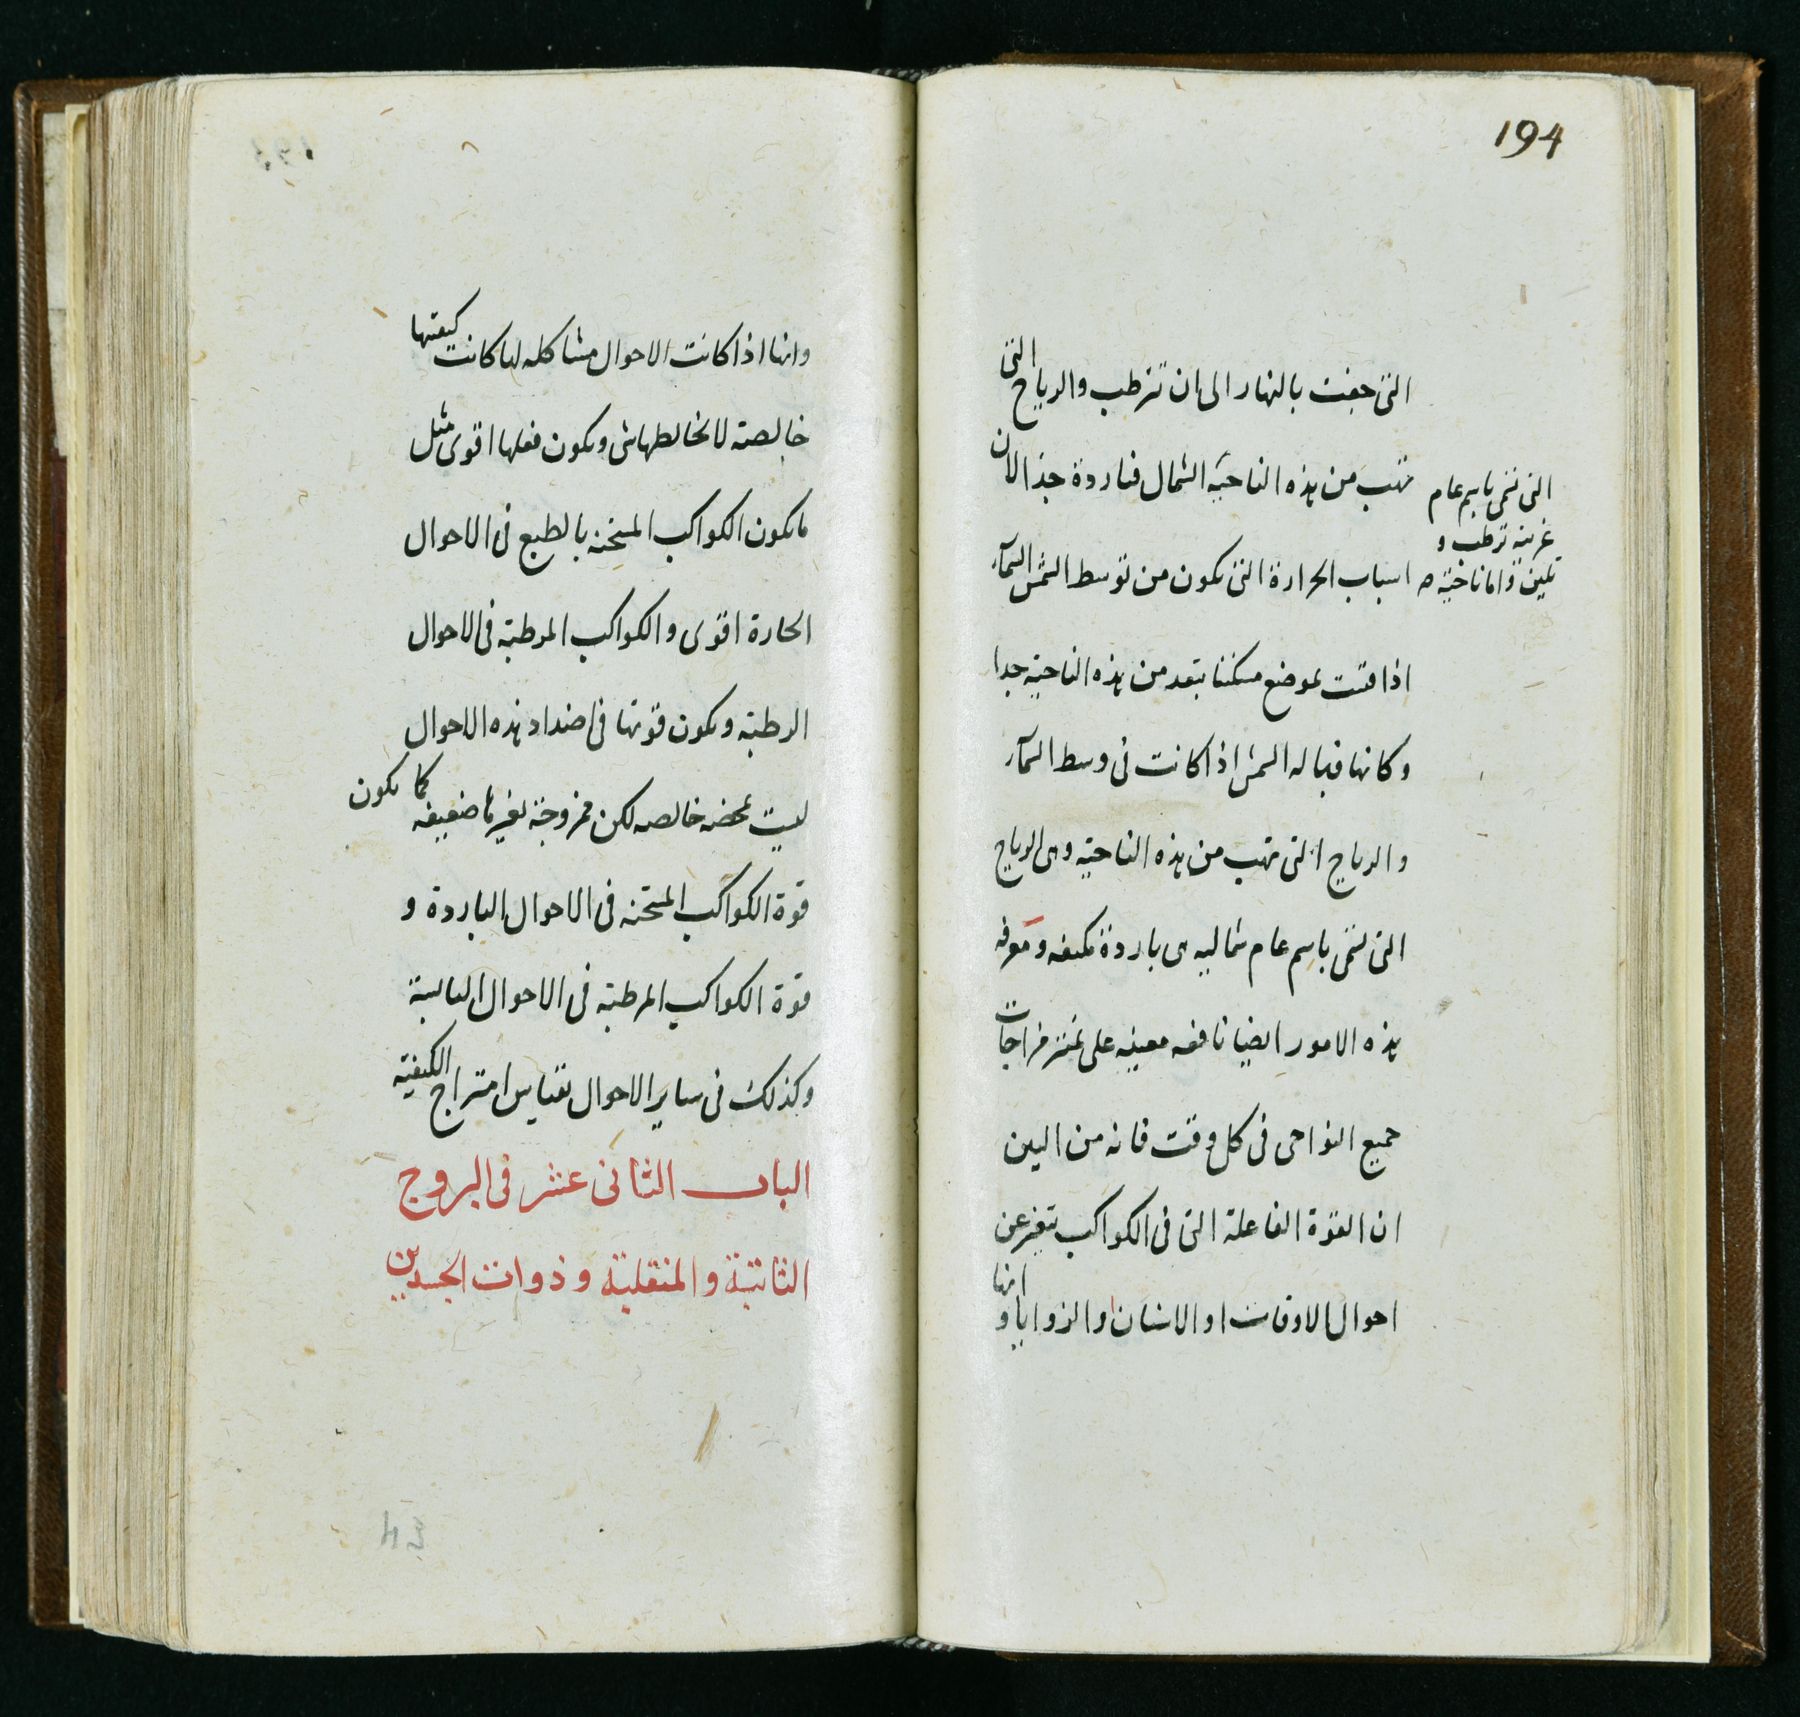 194
التى جفت بالنهار الى ان ترطب والرياح التى
تهب من هذه الناحية الشمال فباردة جدا لان
التى تسمى باسم عام
غربية ترطب و
تلين واما ناحية
اسباب الحرارة التى تكون من توسط الشمس السماء
اذا قست بموضع مسكننا بتعد من هذه الناحية جدا
وكانها قبالة الشمس اذا كانت فى وسط السماء
والرياح التى تهب من هذه الناحية وهى الرياح
التى تسمى باسم عام شمالية هى باردة مكثفه و
هذه الامور ايضا نافعه معينه على تميز مزاجات
جميع النواحى فى كل وقت فانه من البين
ان القوة الفاعلة التى فى الكواكب تتغير عن
احوال الاوقات او الاسنان او الزوايا و انها
وانها اذا كانت الاحوال مشاكله لها كانت كيفيتها
خالصة لا يخالطها شى ويكون فعلها اقوى مثل
ما يكون الكواكب المسخنه بالطبع فى الاحوال
الحارة اقوى والكواكب المرطبة فى الاحوال
الرطبة ويكون قوتها فى اضداد هذه الاحوال
ليست بمحضه خالصه لكن ممزوجة بغيرها ضعيفه كما يكون
قوة الكواكب المسخنه فى الاحوال الباردة و
قوة الكواكب المرطبة فى الاحوال اليابسة
وكذلك فى ساير الاحوال بقياس امتزاج الكيفية
الباب الثانى عشر فى البروج
الثابتة والمنقلبة وذوات الجسدين